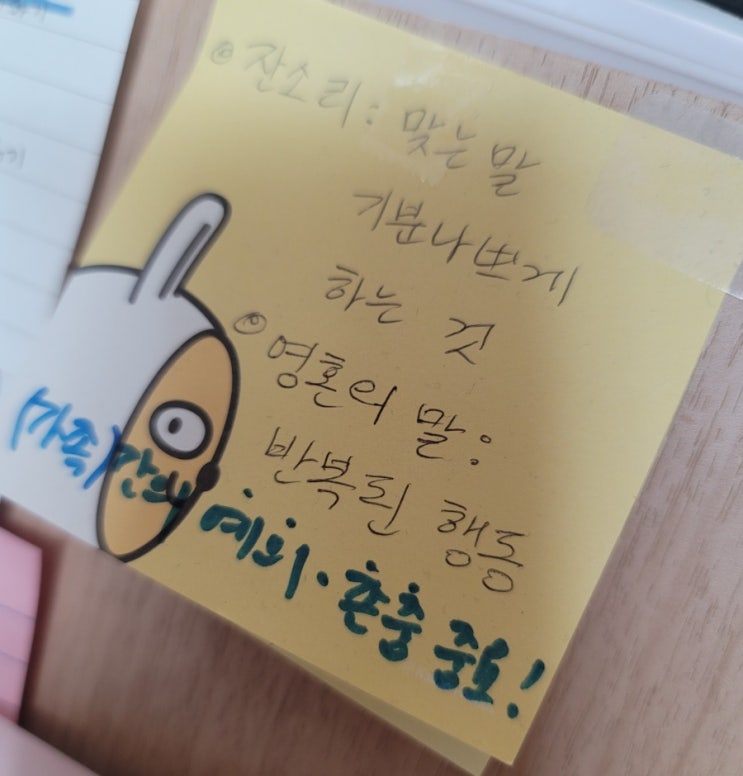 ◎ 잔소리 : 맞는 말
기분나쁘게
하는 것
◎ 영혼의 말 :
반복된 행동
(가족)간의 예의 · 존중 중요!